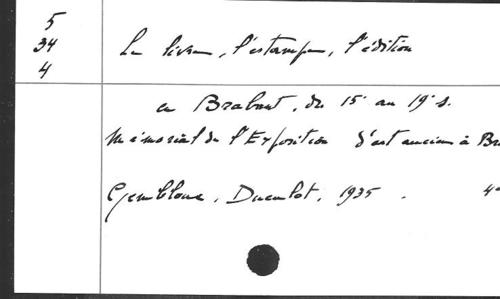 5
34
4
Le livre, l'estampe, l'édition
en Brabant, du 15e au 19e s.
Mémorial de l'Exposition d'art ancien à Br
Gembloux, Duculot, 1935. 4°